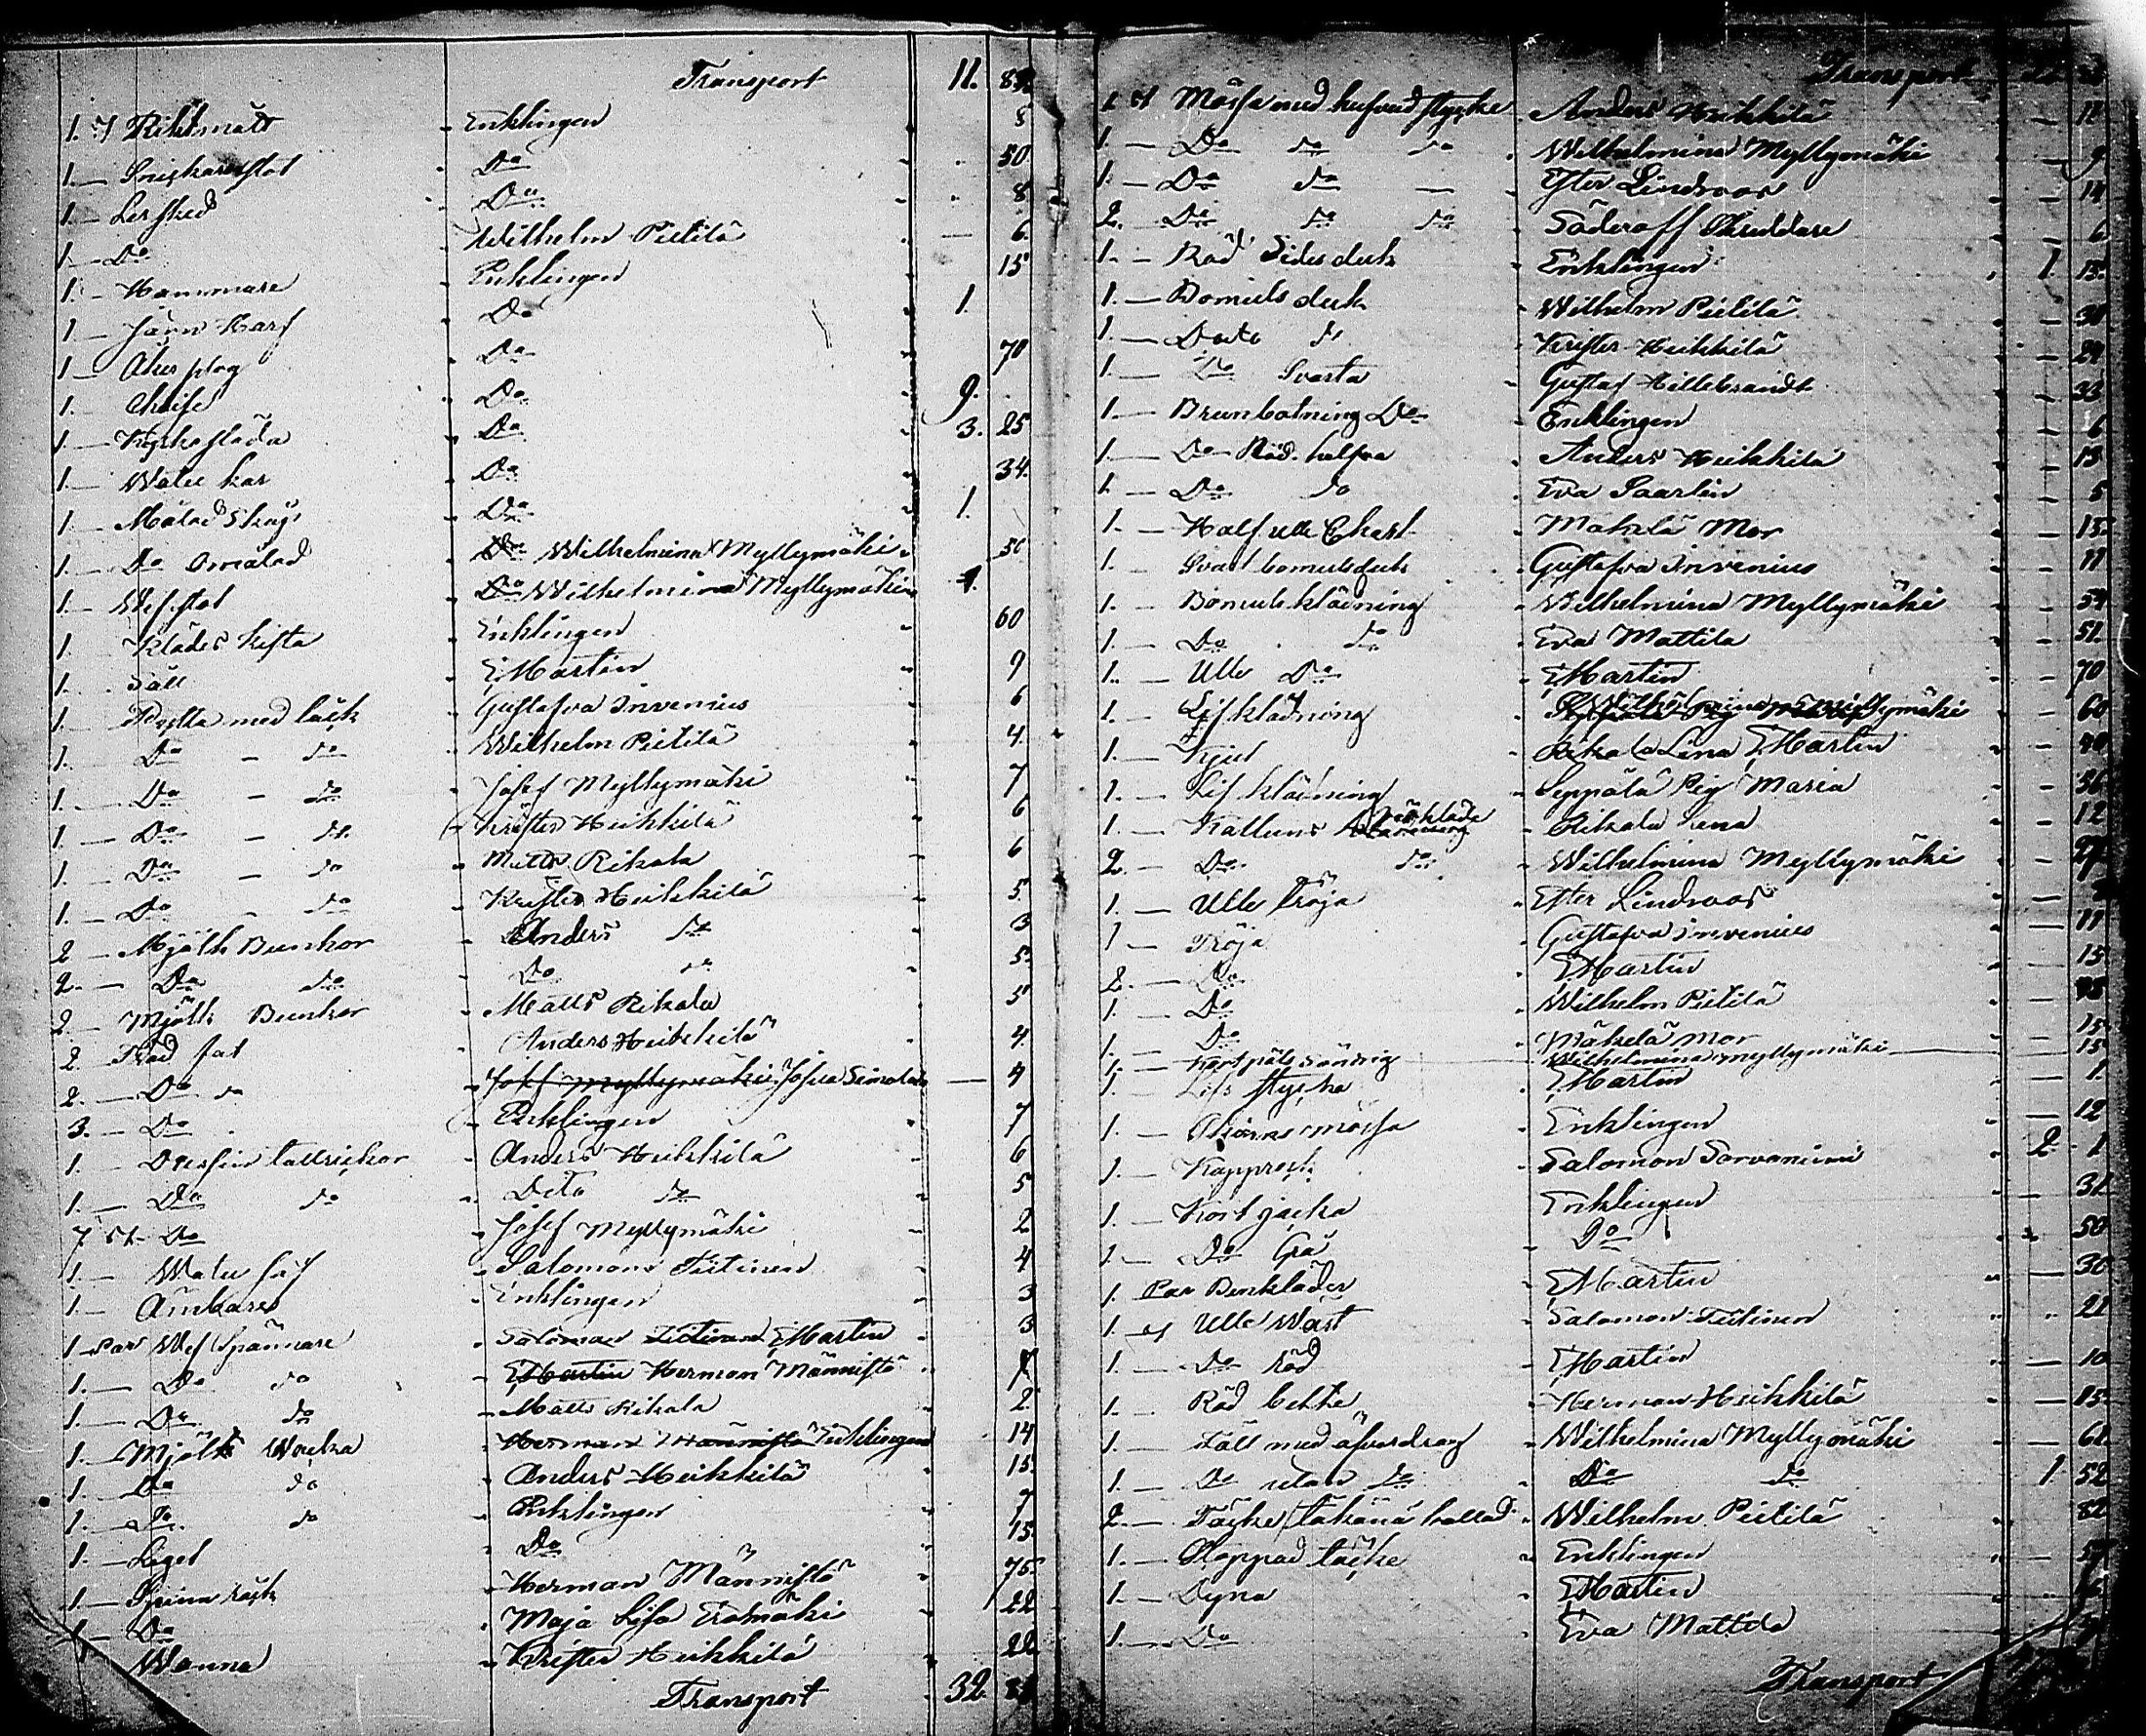 Transport 11. 89
1. st Riktmått Enklingen 8
1. — Snickarestol Do 50
1. — Lerfked Do 8
1 — Do Wilhelm Pietilä — 6.
1. - Hammare Enklingen 15
1 — Järn Harf Do 1.
1 — Åker plog Do 70
1. Do 9.
1 — Kyrkoslåda Do 3. 25
1 — Watu kar Do 34.
1 — Målad Skåp Do 1.
1 — Do omålad Wilhelmina Myllymäki 50
1. — Wefstol Wilhelmina Myllymäki 1.
1. Kläder kista Enklingen 60
1. Såll E Martin 9
1. Bytta med låck Gustafva Invenius 6
1. Do - do Wilhelm Pietilä 4.
1 — Do - do Josef Myllymäki 7
1 — Do - do Krister Heikkilä 6
1. — Do - do Matts Rikala 6
1. — Do - do Krister Heikkilä 5.
2 — Mjölk Bunkor Anders do 3
2. — Do do Do do 5.
2 — Mjölk Bunkor Matts Rikala 5
2 Träd fat Anders Heikkilä 4.
2. — Do do Josef Myllymäki Josua Simola — 4
3. — Do Enklingen 7
1. — Dussin tallrickor Anders Heikkilä 6
1. — Do do Deto do 5
7 st. Do Josef Myllymäki 2
1. — Watu såf Salomon Tiitinen 4
1 — Ämbare Enklingen 3
1 Par Wef Spännare Salomon Tiitinen E Martin 3
1. — Do do E Martin Herman Männistö
1. — Do do Matts Rikala 2.
1. — Mjölk Herman Männistö Enklingen 14
1. — Do do Anders Heikkilä 15.
1. — Do do Enklingen 7
1. — Do 15.
1. — Spinn råck Herman Männistö 75.
1 — Do Maja Lisa 22
Wanna Krister Heikkilä 22
Transport 32. 8
Transport
1 st Mössa med hufvud stycke Anders Heikkilä — 11
1. — Do do do Wilhelmina Myllymäki — 9
1. — Do do — Ester Lindroos — 14
2. — Do do do Söderoff Skreddare — 6
1. — Röd Sidesduk Enklingen 1 15.
1. — Bomulsduk Wilhelm Pietilä — 30
1. — Deto do Krister Heikkilä — 29
1. — Do Svarta Gustaf Hillebrandt — 33
1. — Brunbotning Do Enklingen — 6
1. — Do Röd. halfva Anders Heikkilä — 13
1. — Do do Eva Saarlin — 5
1. — Half ulle Mäkelä Mor — 15.
1. Svart bomulsduk Gustafva Invenius — 11
1. — Bomuls klädning Wilhelmina Myllymäki — 54
1. — Do do Eva Mattila — 51.
1. — Ulle Do E Martin — 70
1. — Lifklädning Wilhelmina Myllymäki — 60
1. — Kjol Rikala Lena E Martin — 40
1. — Lif klädning Seppälä Pig Maria — 56
1. — Kattuns Rikala Lena — 12
2. — Do do Wilhelmina Myllymäki — 27
1. — Ulle Tröja Ester Lindroos —
1 — Tröja Gustafva Invenius — 11
2. — Do E Martin — 15
1. — Do Wilhelm Pietilä —
1. — Do Mäkelä Mor — 15.
1. — Wilhelmina Myllymäki — 15
1. — Lifs stycke E Martin — 1.
1. — mössa Enklingen — 12
1. — Kapprock Salomon Sorvaniemi 2. 1
1. — Kort jacka Enklingen — 31
1. — Do Grå Do 50
1. Par Benkläder E Martin — 30
1. st Ulle Wäst Salomon Tiitinen 21
1. — Do röd E Martin — 10
1. — Röd Herman Heikkilä — 15.
1. — Fäll med öfverdrag Wilhelmina Myllymäki — 61.
1. — Do utan do Do do 1. 52
2. — Täcke (takänä kallad Wilhelm Pietilä 82
1. — Stoppad täcke Enklingen — 57
1. — Dyna E Martin
1. — Do Eva Mattila
Transport